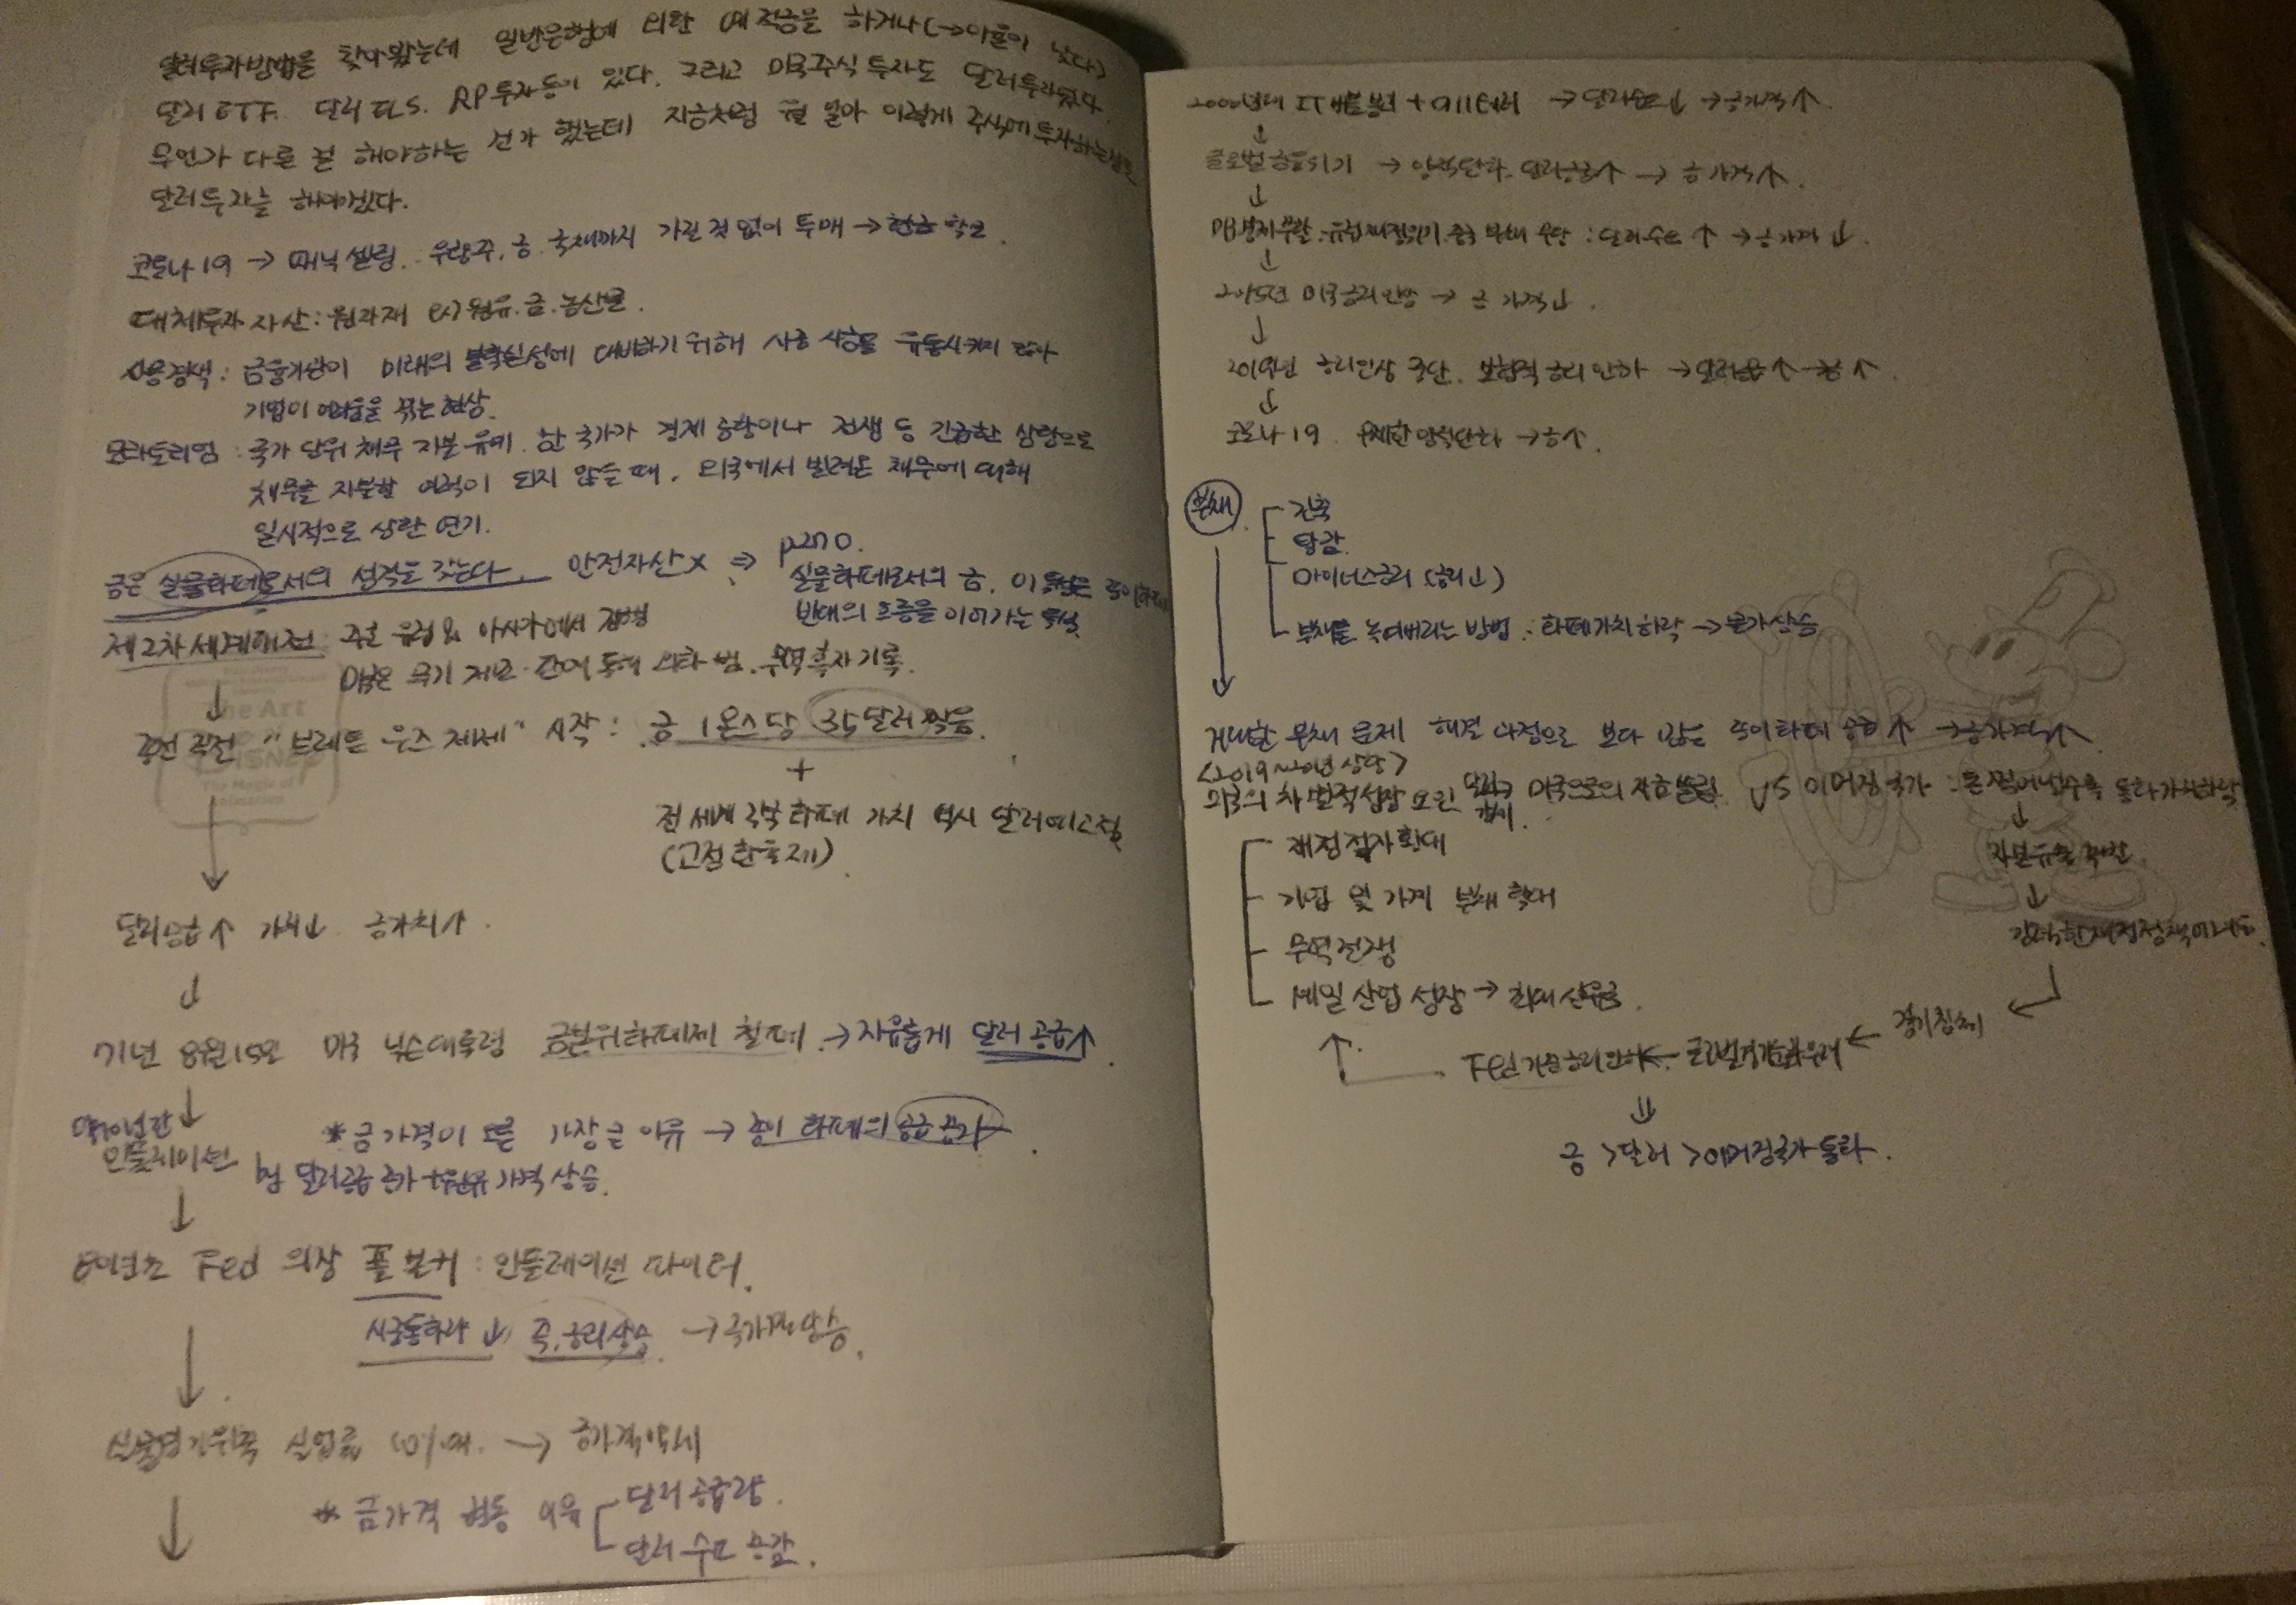 달러투자방법을 찾아봤는데 일반은행에 외환 예적금을 하거나 (→이율이 낮다)
달러 ETF. 달러 ELS. RP투자등이 있다. 그리고 미국주식 투자도 달러투자였다.
무언가 다른 걸 해야하는 건가 했는데 지금처럼 이렇게 주식에 투자하는
달러투자를 해야겠다.
코로나19 → 패닉 셀링. 우량주, 금. 국채까지 가릴 것 없이 투매 → 현금 확보
대체투자 자산: 원자재 ex) 원유. 금. 농산물.
신용경색: 금융기관이 미래의 불확실성에 대비하기 위해 시중 유동시키지
기업이 어려움을 겪는 현상.
모라토리엄: 국가 단위 채무 지불 유예. 한 국가가 경제 상황이나 전쟁 등 긴급한 상황으로
채무를 지불할 여력이 되지 않을 때. 외국에서 빌려온 채무에 대해
일시적으로 상환 연기.
금은 실물화폐로서의 성격을 갖는다. 안전자산 X ⇒ p270.
실물화폐로서의 금. 이 종이화폐
반대의 흐름을 이어가는
제2차세계대전 주로 유럽 & 아시아에서 진행
미국은 무기 제조. 판매 통해 무역 흑자 기록.
↓
종전 직전 "브레튼 우즈 체제" 시작: 금 1온스당 35달러 묶음.
+
전 세계 각국 화폐 가치 역시 달러에 고정
(고정환율제)
↓
달러공급↑ 가치↓ 금가치↑.
↓
71년 8월15일 미국 닉슨대통령 금본위화폐제 철폐 → 자유롭게 달러 공급↑
↓
인플레이션
* 금가격이 오른 가장 큰 이유 → 종이 화폐의 공급 증가
by 달러공급 증가 + 원유 가격 상승.
↓
80년초 Fed 의장 폴볼커: 인플레이션 파이터.
시중통화량↓, 즉, 금리상승 →
↓
실업률 10%대. → 금가격약세
↓
* 금가격 변동 이유
달러 공급량.
달러 수요 증감.
2000년대 IT버블붕괴 + 911테러 → 달러수요↓ → 금가격↑.
↓
글로벌금융위기 → 양적완화. 달러공급↑ → 금가격↑.
↓
미경제부활. 유럽재정위기. 중국 부채 부담: 달러수요↑ → 금가격↓.
↓
2015년 미국금리인상 → 금 가격↓.
↓
2019년 금리인상 중단. 보험적 금리 인하 → 달러공급↑ → 금↑.
↓
코로나19. 무제한 양적완화 → 금↑.
부채
긴축
탕감.
마이너스금리 (금리↓)
부채를 녹여버리는 방법: 화폐가치하락 → 물가상승
↓
거대한 부채 문제 해결 과정으로 보다 많은 종이화폐 공급↑ → 금가격↑
<2019~20년 상황>
미국의 차별적성장 요인 달러 강세. 미국으로의 자금쏠림 VS 이머징 국가: 돈 찍어낼수록 통화가치하락
↓
자본유출 촉발.
↓
강력한재정정책어려움.
재정적자확대
기업 및 가계 부채 확대
무역전쟁
셰일 산업 성장 → 최대 산유국.
↑
Fed 기준금리인하 ← 글로벌경기둔화우려 ← 경기침체
⇓
금 > 달러 > 이머징국가 통화.